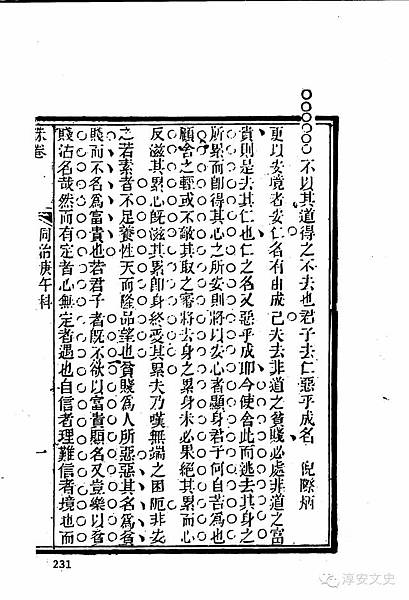 不以其道得之不去也君子去仁惡乎成名　倪際炳
更以安境者安仁名有由成已夫去非道之貧賤必處非道之富
貴則是去其仁也仁之名又惡乎成耶今使舍此而逃去其身之
所累而卽得其心之所安則將以安心者顯身君子何自苦爲也
顧舍之輕或不敵其取之審將去身之累身未必果絕其累而心
反滋其累心旣滋其累卽身終受其累夫乃嘆無端之困阨非安
之若素者不足養性天而隆品望也貧賤爲人所惡惡其名爲貧
賤而不名爲富貴也若君子者旣不欲以富貴惡名又豈樂以貧
賤沽名哉然而有定者心無定者遇也自信者理難信者境也而
硃卷　同治庚午科　一
231
淳安文史